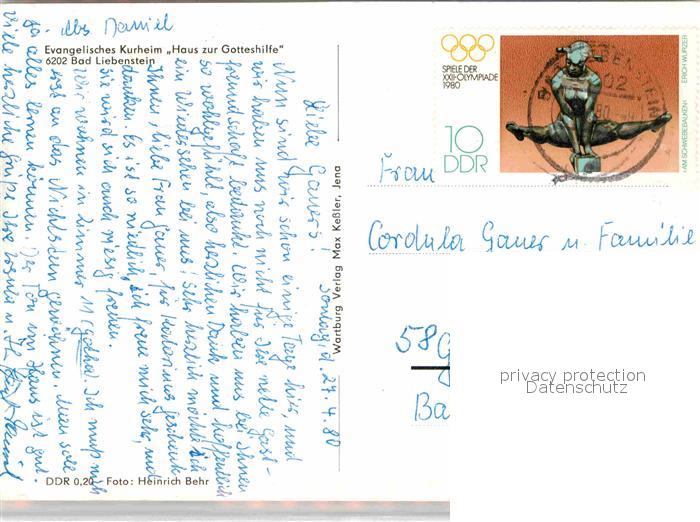 Abs Daniel
Evangelisches Kurheim „Haus zur Gotteshilfe“
6202 Bad Liebenstein
Liebe Gauers! Sonntag d. 27.4.80
Nun sind wir schon einige Tage hier, und
wir haben uns noch nicht für Ihre nette Gast-
freundschaft bedankt. Wir haben uns bei Ihnen
so wohlgefühlt, also herzlichen Dank und hoffentlich
ein Wiedersehen bei uns! Sehr herzlich möcht ich
Ihnen, liebe Frau Gauer, für Geschenk
danken. Es ist so niedlich, ich freue mich sehr, und
sie wird sich auch riesig freuen.
Wir wohnen in Zimmer 11 Ich muß mich
erst an das Nichtstun gewöhnen. Man soll
ja alles lernen können. Der Ton im Haus ist gut.
Viele herzliche Grüße Ihre u.
Wartburg Verlag Max Keßler, Jena
DDR 0,20 - Foto: Heinrich Behr
SPIELE DER
XXII·OLYMPIADE
1980
10
DDR
»AM SCHWEBEBALKEN«
ERICH WURZER
Frau
Cordula Gauer u. Familie
58
Ba
privacy protection
Datenschutz